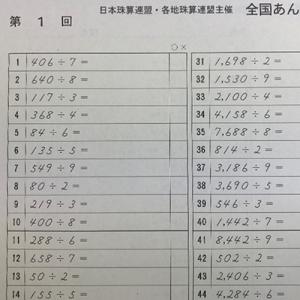 日本珠算連盟・各地珠算連盟主催 全国あん
第 1 回
○ ×
1 406÷7=
2 640÷8=
3 117÷3=
4 368÷4=
5 84÷6=
6 135÷5=
7 549÷9=
8 80÷2=
9 219÷3=
10 400÷8=
11 288÷6=
12 658÷7=
13 50÷2=
14 155÷5
31 1,698÷2=
32 1,530÷9=
33 2,100÷4=
34 4,158÷6=
35 7,688÷8=
36 814÷2=
37 3,186÷9=
38 3,690÷5=
39 546÷3=
40 1,442÷7=
41 8,442÷9=
42 502÷2=
43 2,406÷3=
44 4,284÷6=